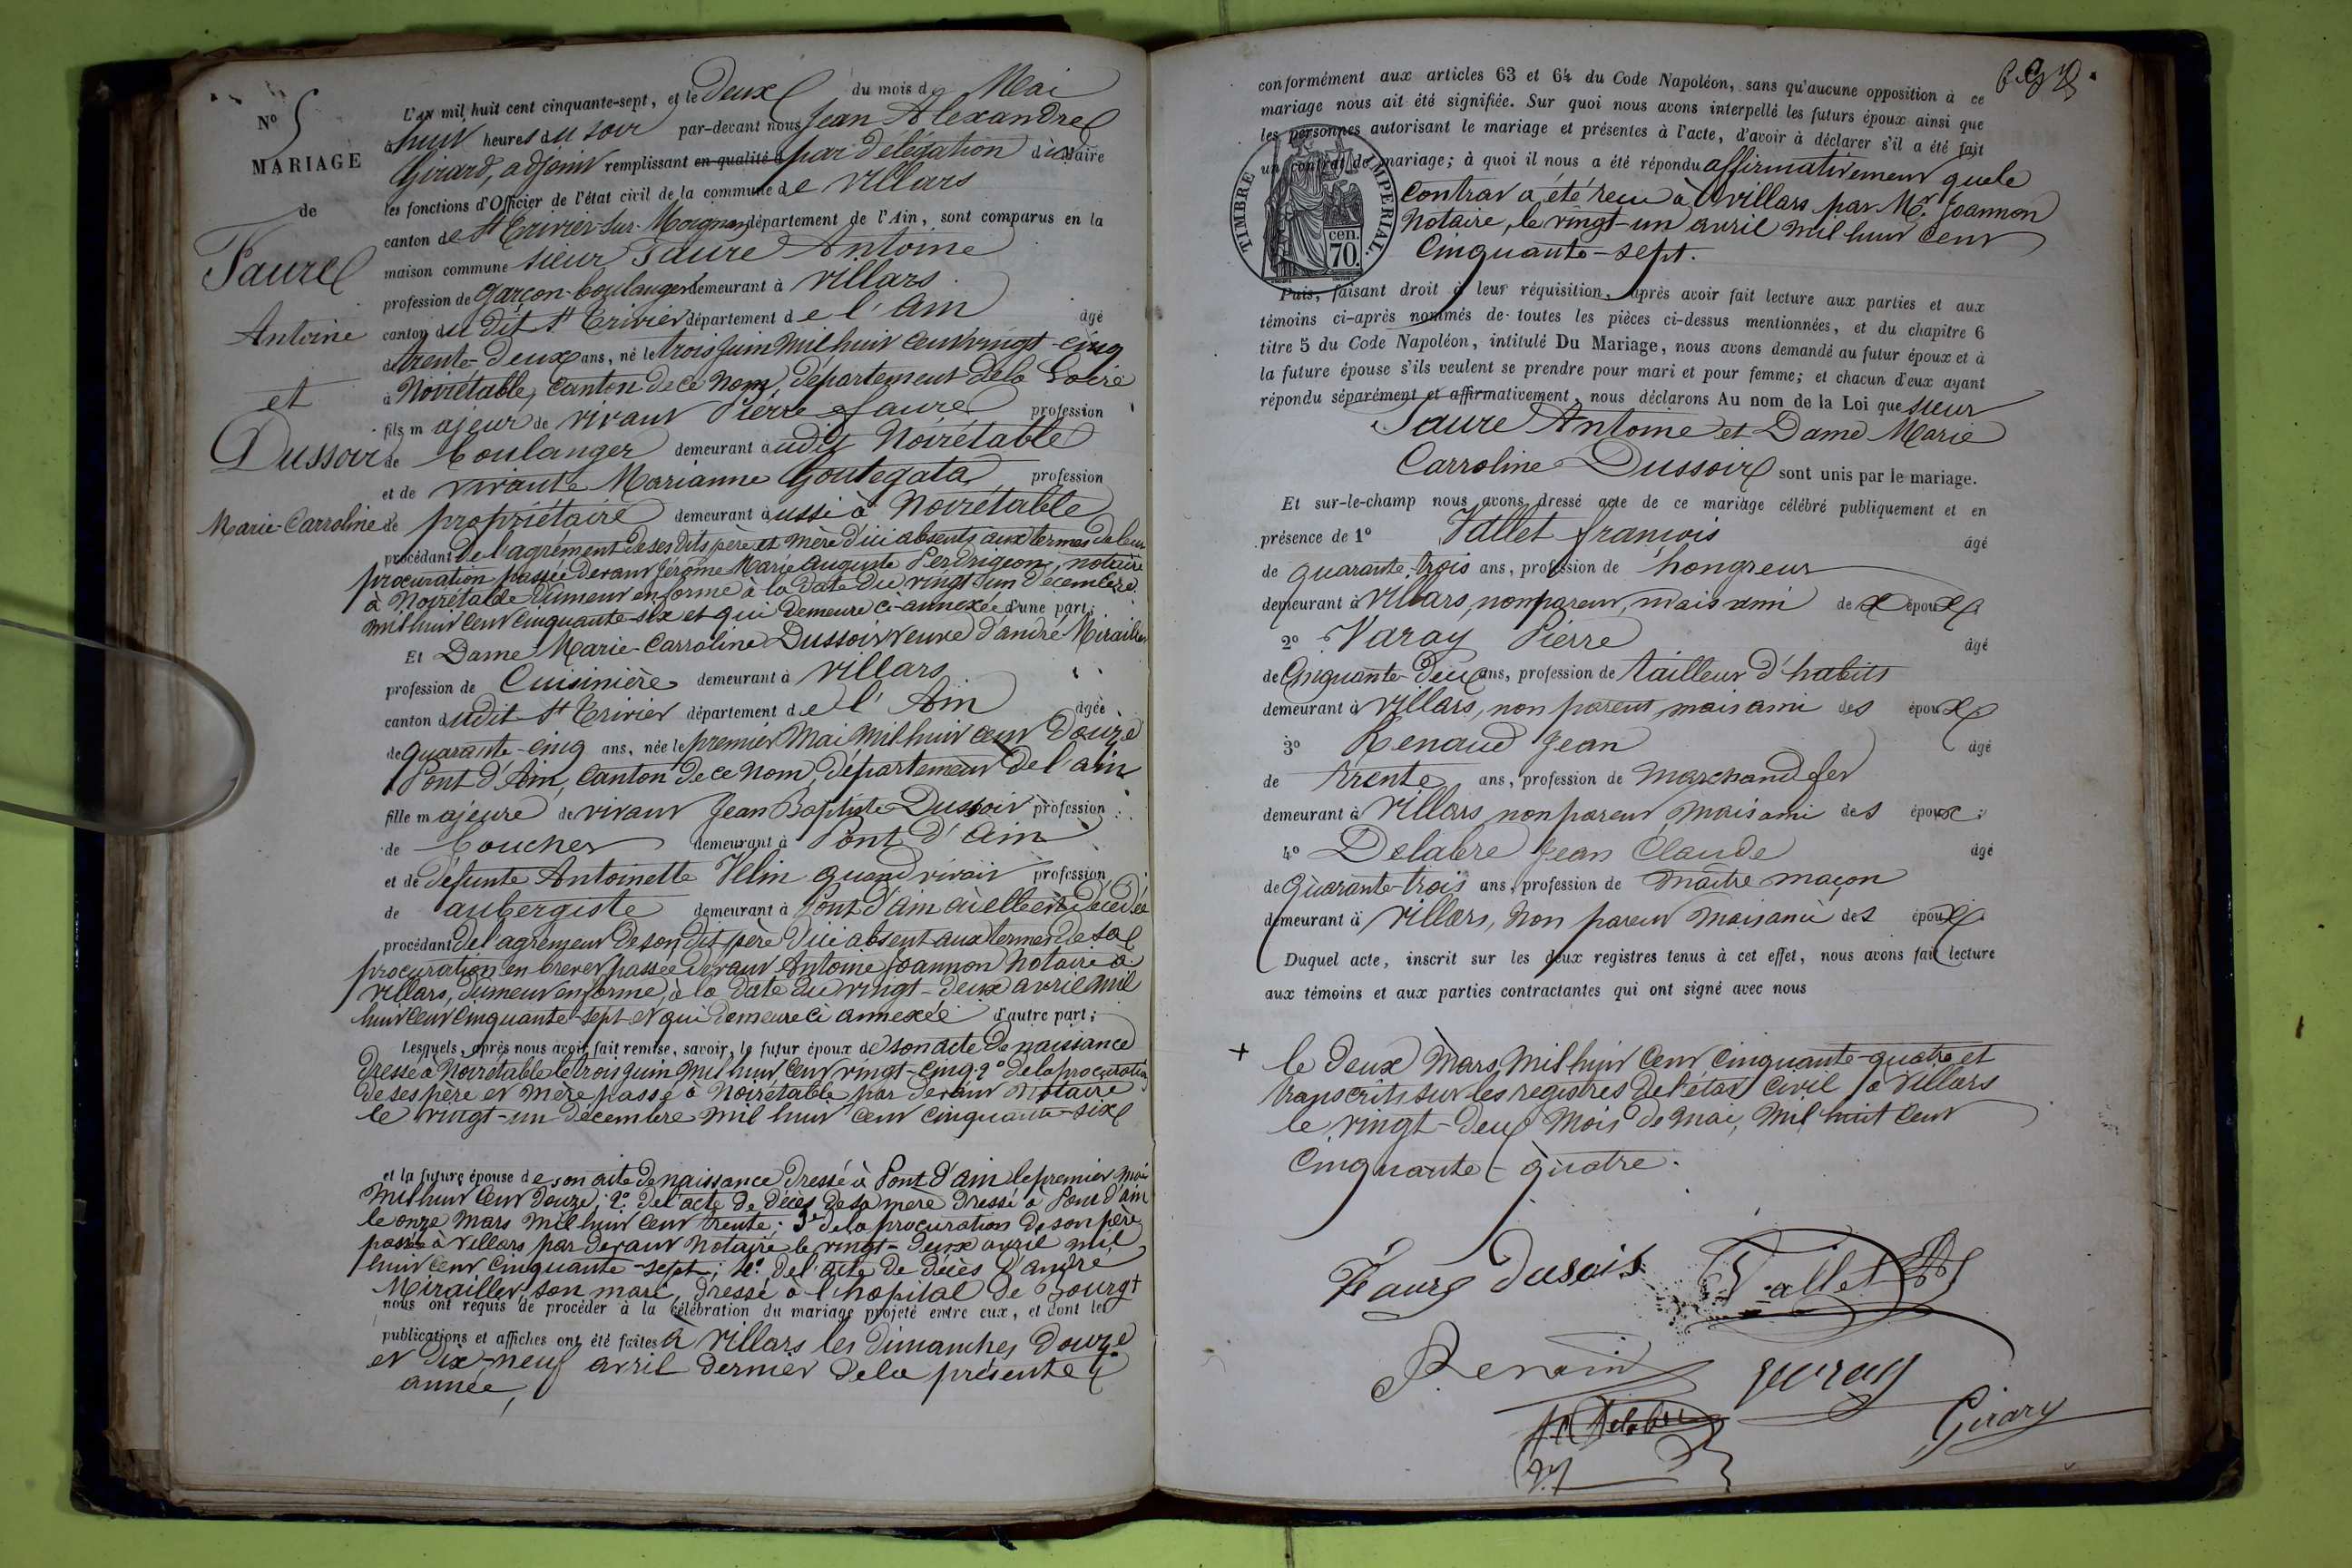 N° 5
MARIAGE
de
Faure
Antoine
et
Dussoir
Marie-Carroline
L'an mil huit cent cinquante-sept, et le deux du mois de Mai
à huit heures du soir par-devant nous Jean Alexandre
Girard, adjoint remplissant en qualité d par délégation du Maire
les fonctions d'Officier de l'état civil de la commune de Villars
canton de St Trivier-sur-Moignans département de l'Ain, sont comparus en la
maison commune sieur Faure Antoine
profession de garçon-boulanger demeurant à Villars
canton dudit St Trivier département de l'Ain âgé
de trente-deux ans, né le trois juin mil huit cent vingt-cinq
à Noirétable, canton de ce nom, département de la Loire
fils majeur de vivant Pierre Faure profession
de boulanger demeurant audit Noirétable
et de vivante Marianne Goutegata profession
de propriétaire demeurant aussi à Noirétable
procédant de l'agrément de ses dits père et mère d'ici absents aux termes de leur
procuration passée devant Jérôme Marie Auguste Perdrigeon, notaire
à Noirétable dument en forme à la date du vingt-un décembre
mil huit cent cinquante-six et qui demeure ci-annexée d'une part;
Et Dame Marie-Carroline Dussoir veuve d'andré Miraillier
profession de Cuisinière demeurant à Villars
canton dudit St Trivier département de l'Ain âgée
de quarante-cinq ans, née le premier Mai mil huit cent douze
à Pont d'Ain, canton de ce nom, département de l'ain
fille majeure de vivant Jean Baptiste Dussoir profession
de boucher demeurant à Pont d'ain
et de défunte Antoinette Velin quand vivait profession
de aubergiste demeurant à Pont d'ain où elle est décédée
procédant de l'agrément de son dit père d'ici absent aux termes de sa
procuration en brevet passée devant Antoine Joannon notaire à
Villars, dument en forme, à la date du vingt-deux avril mil
huit cent cinquante-sept et qui demeure ci annexée d'autre part;
Lesquels, après nous avoir fait remise, savoir, le futur époux de son acte de naissance
dressé à Noirétable le trois juin mil huit cent vingt-cinq. 2° de la procuration
de ses père et mère passé à Noirétable par devant notaire
le vingt-un décembre mil huit cent cinquante-six
et la future épouse de son acte de naissance dressé à Pont d'ain le premier mai
mil huit cent douze, 2° de l'acte de décès de sa mère dressé à Pont d'ain
le onze mars mil huit cent trente. 3° de la procuration de son père
passée à Villars par devant notaire le vingt-deux avril mil
huit cent cinquante-sept; 4° de l'acte de décès d'andré
Mirailler, son mari, dressé à l'hopital de Bourg +
nous ont requis de procéder à la célébration du mariage projeté entre eux, et dont les
publications et affiches ont été faites à Villars les dimanches douze
et dix-neuf avril dernier de la présente
année,
conformément aux articles 63 et 64 du Code Napoléon, sans qu'aucune opposition à ce
mariage nous ait été signifiée. Sur quoi nous avons interpellé les futurs époux ainsi que
les personnes autorisant le mariage et présentes à l'acte, d'avoir à déclarer s'il a été fait
un contrat de mariage; à quoi il nous a été répondu affirmativement que le
contrat a été reçu à Villars par Me Joannon
notaire, le vingt-un avril mil huit cent
cinquante-sept.
TIMBRE IMPERIAL.
cen.
70.
Puis, faisant droit à leur réquisition, après avoir fait lecture aux parties et aux
témoins ci-après nommés de toutes les pièces ci-dessus mentionnées, et du chapitre 6
titre 5 du Code Napoléon, intitulé Du Mariage, nous avons demandé au futur époux et à
la future épouse s'ils veulent se prendre pour mari et pour femme; et chacun d'eux ayant
répondu séparément et affirmativement, nous déclarons Au nom de la Loi que sieur
Faure Antoine et Dame Marie
Carroline Dussoir sont unis par le mariage.
Et sur-le-champ nous avons dressé acte de ce mariage célébré publiquement et en
présence de 1° Vallet françois âgé
de quarante-trois ans, profession de hongreur
demeurant à Villars, non parent, mais ami des époux
2° Varay Pierre âgé
de Cinquante-deux ans, profession de tailleur d'habits
demeurant à Villars, non parent, mais ami des époux
3° Renaud Jean âgé
de trente ans, profession de marchand fer
demeurant à Villars non parent mais ami des époux;
4° Delabre Jean Claude âgé
de quarante-trois ans, profession de maître maçon
demeurant à Villars, non parent mais ami des époux
Duquel acte, inscrit sur les deux registres tenus à cet effet, nous avons fait lecture
aux témoins et aux parties contractantes qui ont signé avec nous
+ le deux Mars mil huit cent cinquante-quatre et
transcrit sur les registres de l'état civil à Villars
le vingt-deux mois de mai, mil huit cent
cinquante-quatre.
Faure dusois Vallet
Renaud varay
Delabre Girard